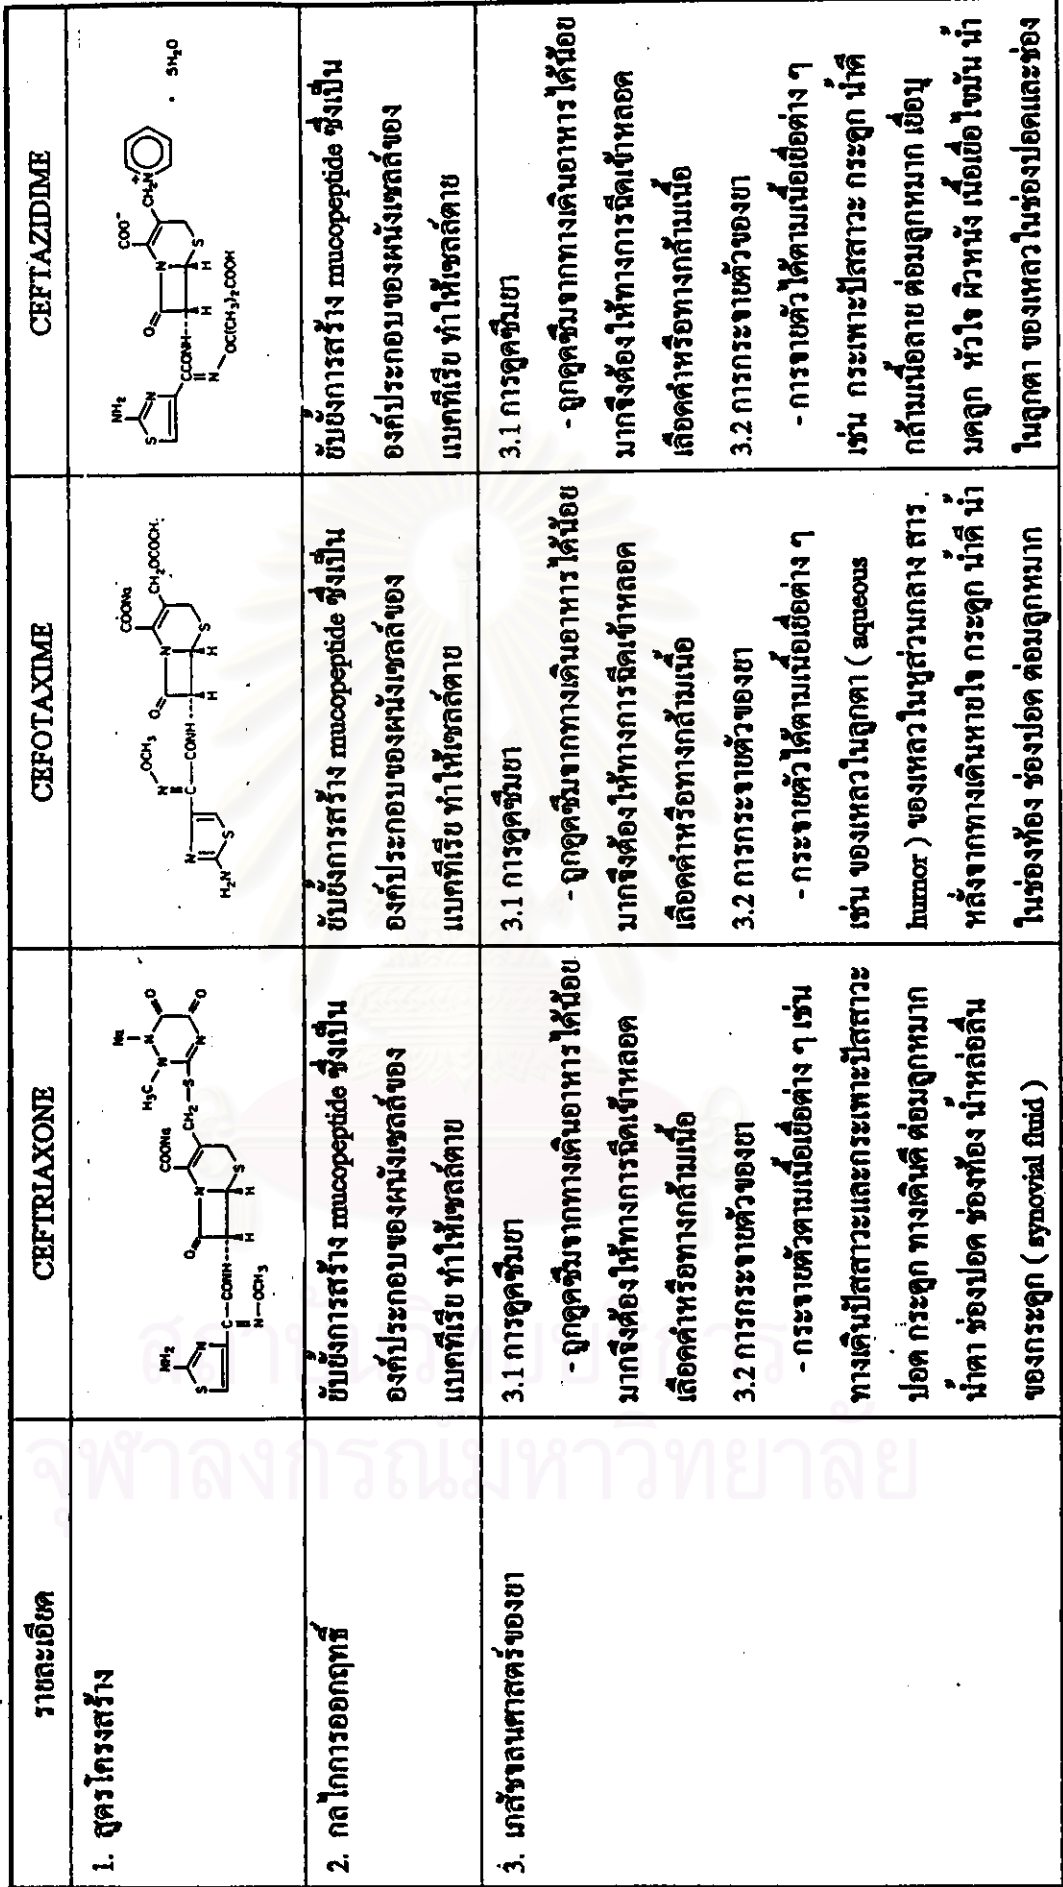 รายละเอียด
CEFTRIAXONE
CEFOTAXIME
CEFTAZIDIME
1. สูตรโครงสร้าง
2. กลไกการออกฤทธิ์
ยับยั้งการสร้าง mucopeptide ซึ่งเป็น
องค์ประกอบของผนังเซลล์ของ
แบคทีเรีย ทำให้เซลล์ตาย
ยับยั้งการสร้าง mucopeptide ซึ่งเป็น
องค์ประกอบของผนังเซลล์ของ
แบคทีเรีย ทำให้เซลล์ตาย
ยับยั้งการสร้าง mucopeptide ซึ่งเป็น
องค์ประกอบของผนังเซลล์ของ
แบคทีเรีย ทำให้เซลล์ตาย
3. เภสัชจลนศาสตร์ของยา
3.1 การดูดซึมยา
- ถูกดูดซึมจากทางเดินอาหารได้น้อย
มากจึงต้องให้ทางการฉีดเข้าหลอด
เลือดดำหรือทางกล้ามเนื้อ
3.2 การกระจายตัวของยา
- กระจายตัวตามเนื้อเยื่อต่าง ๆ เช่น
ทางเดินปัสสาวะและกระเพาะปัสสาวะ
ปอด กระดูก ทางเดินน้ำดี ต่อมลูกหมาก
น้ำตา ช่องปอด ช่องท้อง น้ำหล่อลื่น
ของกระดูก ( synovial fluid )
3.1 การดูดซึมยา
- ถูกดูดซึมจากทางเดินอาหารได้น้อย
มากจึงต้องให้ทางการฉีดเข้าหลอด
เลือดดำหรือทางกล้ามเนื้อ
3.2 การกระจายตัวของยา
- กระจายตัวได้ตามเนื้อเยื่อต่าง ๆ
เช่น ของเหลวในลูกตา ( aqueous
humor ) ของเหลวในหูส่วนกลาง สาร
หลั่งจากทางเดินหายใจ กระดูก น้ำดี น้ำ
ในช่องท้อง ช่องปอด ต่อมลูกหมาก
3.1 การดูดซึมยา
- ถูกดูดซึมจากทางเดินอาหารได้น้อย
มากจึงต้องให้ทางการฉีดเข้าหลอด
เลือดดำหรือทางกล้ามเนื้อ
3.2 การกระจายตัวของยา
- การจายตัวได้ตามเนื้อเยื่อต่าง ๆ
เช่น กระเพาะปัสสาวะ กระดูก น้ำดี
กล้ามเนื้อลาย ต่อมลูกหมาก เยื่อบุ
มดลูก หัวใจ ผิวหนัง เนื้อเยื่อไขมัน น้ำ
ในลูกตา ของเหลวในช่องปอดและช่อง
สถาบันวิทยบริการ
จุฬาลงกรณ์มหาวิทยาลัย